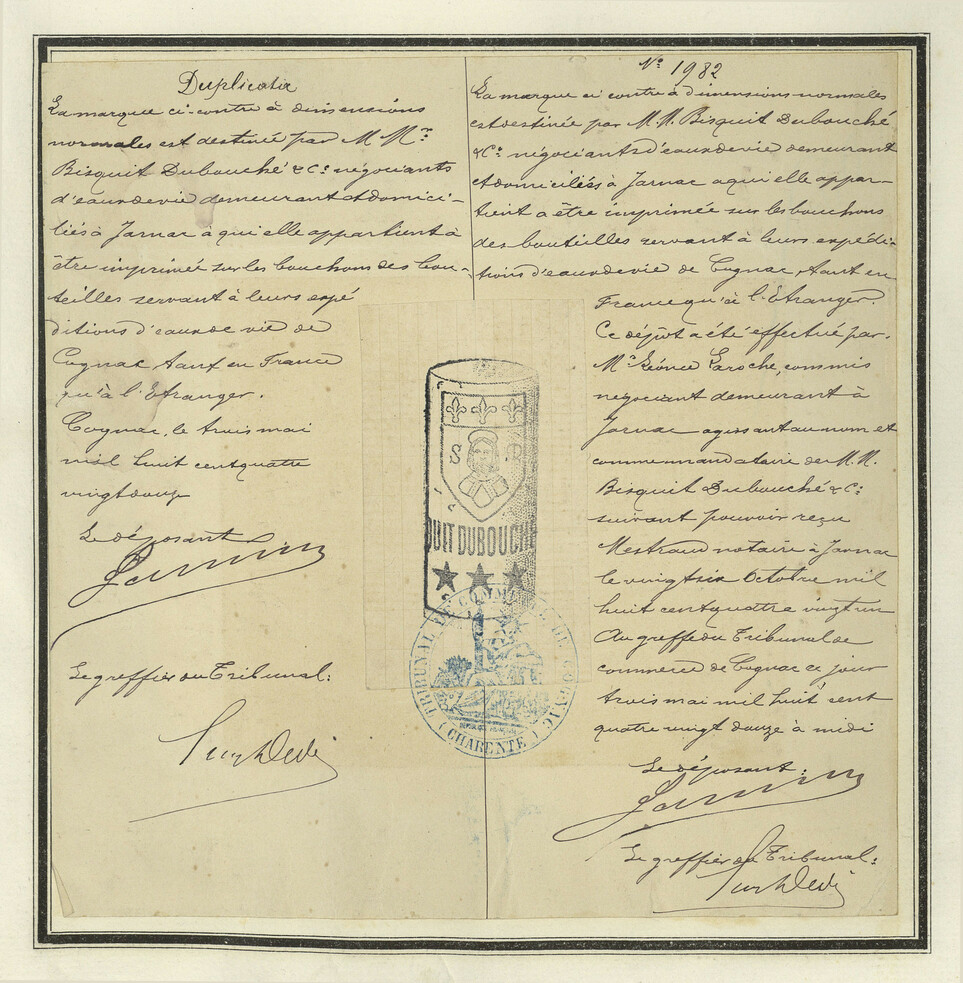 Duplicata
La marque ci-contre à dimensions
normales est destinée par M Mrs
Bisquit Dubouché & Cie négociants
d'eaux de vie demeurant et domici-
liés à Jarnac à qui elle appartient à
être imprimée sur les bouchons des bou-
teilles servant à leurs expé
ditions d'eaux de vie de
Cognac, tant en France
qu'à l'Etranger.
Cognac, le trois mai
mil huit cent quatre
vingt douze
Le déposant
Le greffier du Tribunal:
No 1982
La marque ci contre à dimensions normales
est destinée par M.M. Bisquit Dubouché
& Cie négociants d'eaux de vie demeurant
et domiciliés à Jarnac a qui elle appar-
tient a être imprimée sur les bouchons
des bouteilles servant à leurs expédi-
tions d'eaux de vie de Cognac, tant en
France qu'à l'Etranger.
Ce dépôt a été effectué par
Mr Léonce Laroche, commis
négociant demeurant à
Jarnac agissant au nom et
comme mandataire de M.M.
Bisquit Dubouché & Cie
suivant pouvoir reçu
Mestraud notaire à Jarnac
le vingt six Octobre mil
huit cent quatre vingt un
Au greffe du Tribunal de
commerce de Cognac ce jour
trois mai mil huit cent
quatre vingt douze à midi
Le déposant:
Le greffier du Tribunal:
S D
QUIT DUBOUCHÉ
TRIBUNAL DE COMMERCE DE COGNAC
(CHARENTE)